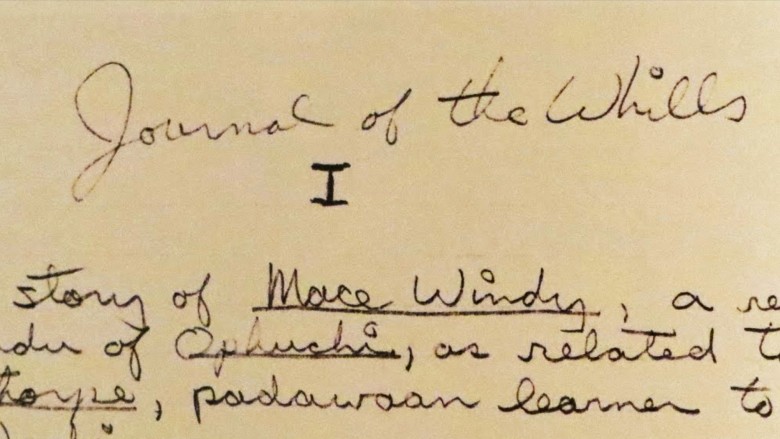 Journal of the Whills
I
story of Mace Windy, a re
ndu of Ophuchi, as related to
horpe, padawaan learner to